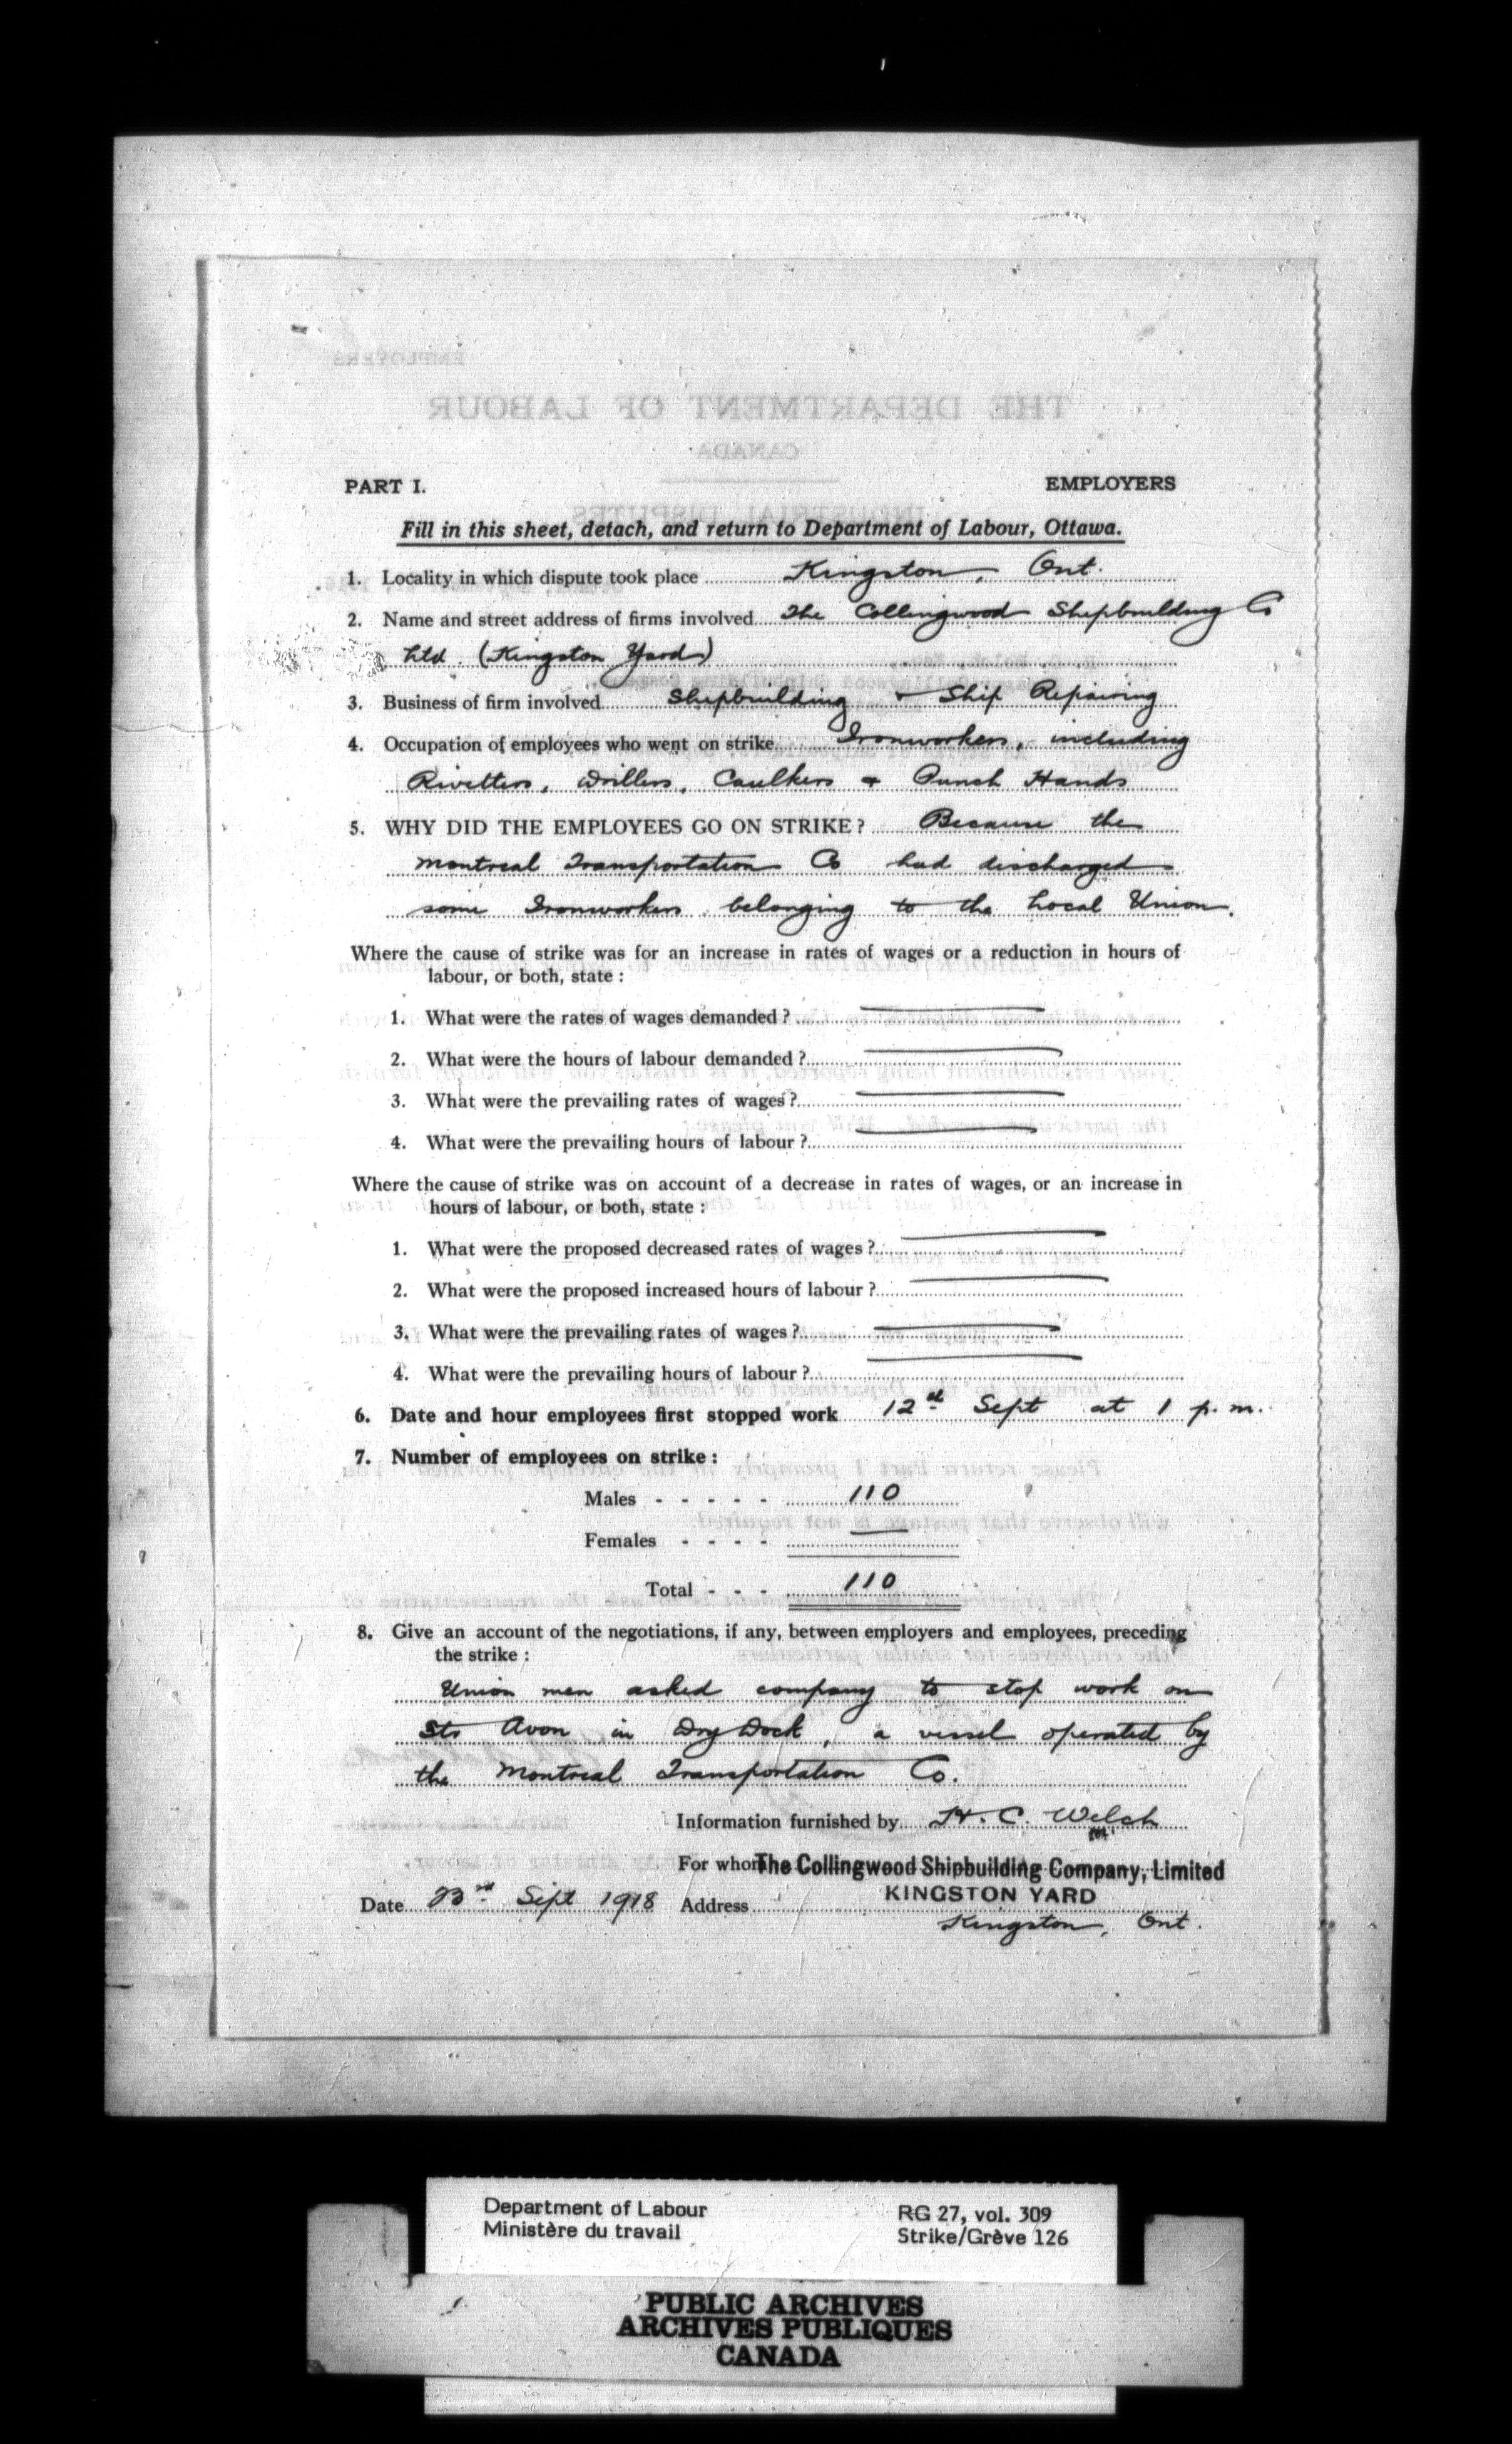 PART I.
EMPLOYERS
Fill in this sheet, detach, and return to Department of Labour, Ottawa.
1. Locality in which dispute took place Kingston, Ont.
2. Name and street address of firms involved The Collingwood Shipbuilding Co
Ltd. (Kingston Yard)
3. Business of firm involved Shipbuilding & Ship Repairing
4. Occupation of employees who went on strike Ironworkers, including
Rivetters, Drillers, Caulkers & Punch Hands
5. WHY DID THE EMPLOYEES GO ON STRIKE? Because the
Montreal Transportation Co had discharged
some Ironworkers belonging to the Local Union.
Where the cause of strike was for an increase in rates of wages or a reduction in hours of
labour, or both, state :
1. What were the rates of wages demanded ?
2. What were the hours of labour demanded ?
3. What were the prevailing rates of wages ?
4. What were the prevailing hours of labour ?
Where the cause of strike was on account of a decrease in rates of wages, or an increase in
hours of labour, or both, state :
1. What were the proposed decreased rates of wages ?
2. What were the proposed increased hours of labour ?
3. What were the prevailing rates of wages ?
4. What were the prevailing hours of labour ?
6. Date and hour employees first stopped work 12th Sept at 1 p.m.
7. Number of employees on strike :
Males - - - - - 110
Females - - - - —
Total - - - 110
8. Give an account of the negotiations, if any, between employers and employees, preceding
the strike :
Union men asked company to stop work on
Str Avon in Dry Dock, a vessel operated by
the Montreal Transportation Co.
Information furnished by H. C. Welch
For whom The Collingwood Shipbuilding Company, Limited
KINGSTON YARD
Date 23rd Sept 1918 Address
Kingston, Ont.
Department of Labour
Ministère du travail
RG 27, vol. 309
Strike/Grève 126
PUBLIC ARCHIVES
ARCHIVES PUBLIQUES
CANADA